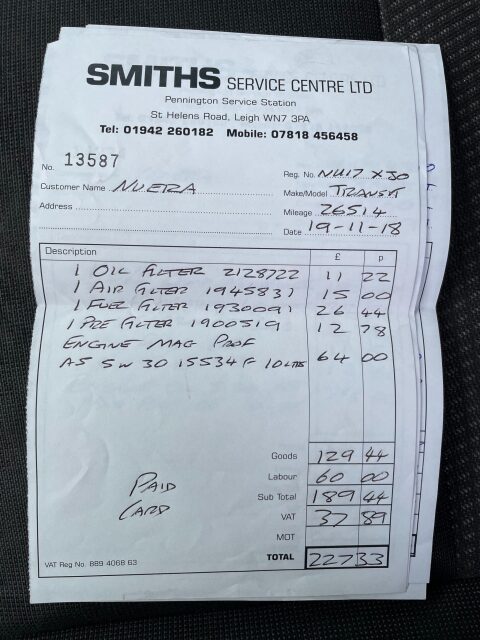 SMITHS SERVICE CENTRE LTD
Pennington Service Station
St Helens Road, Leigh WN7 3PA
Tel: 01942 260182 Mobile: 07818 456458
No. 13587
Reg. No. NU17 XJO
Customer Name NUERA
Make/Model TRANSIT
Address
Mileage 26514
Date 19-11-18
Description £ p
1 OIL FILTER 2128722 11 22
1 AIR FILTER 1945831 15 00
1 FUEL FILTER 1930091 26 44
1 PRE FILTER 1900519 12 78
ENGINE MAG PROF
A5 5W30 15534F 10LTRS 64 00
Goods 129 44
Labour 60 00
PAID
CARD
Sub Total 189 44
VAT 37 89
MOT
TOTAL 227 33
VAT Reg No. 889 4068 63